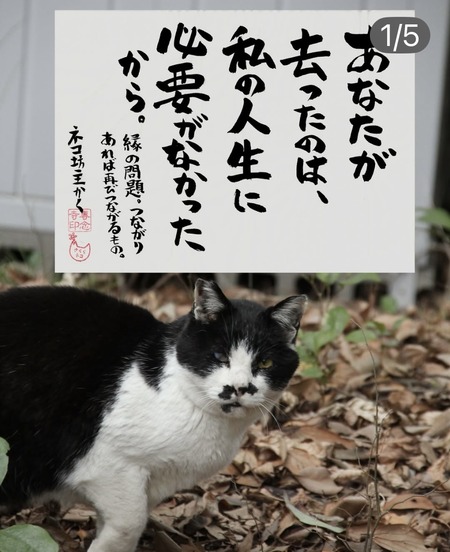 1/5
あなたが
去ったのは、
私の人生に
必要がなかった
から。
縁の問題。つながり
あれば再びつながるもの。
ネコ坊主かく